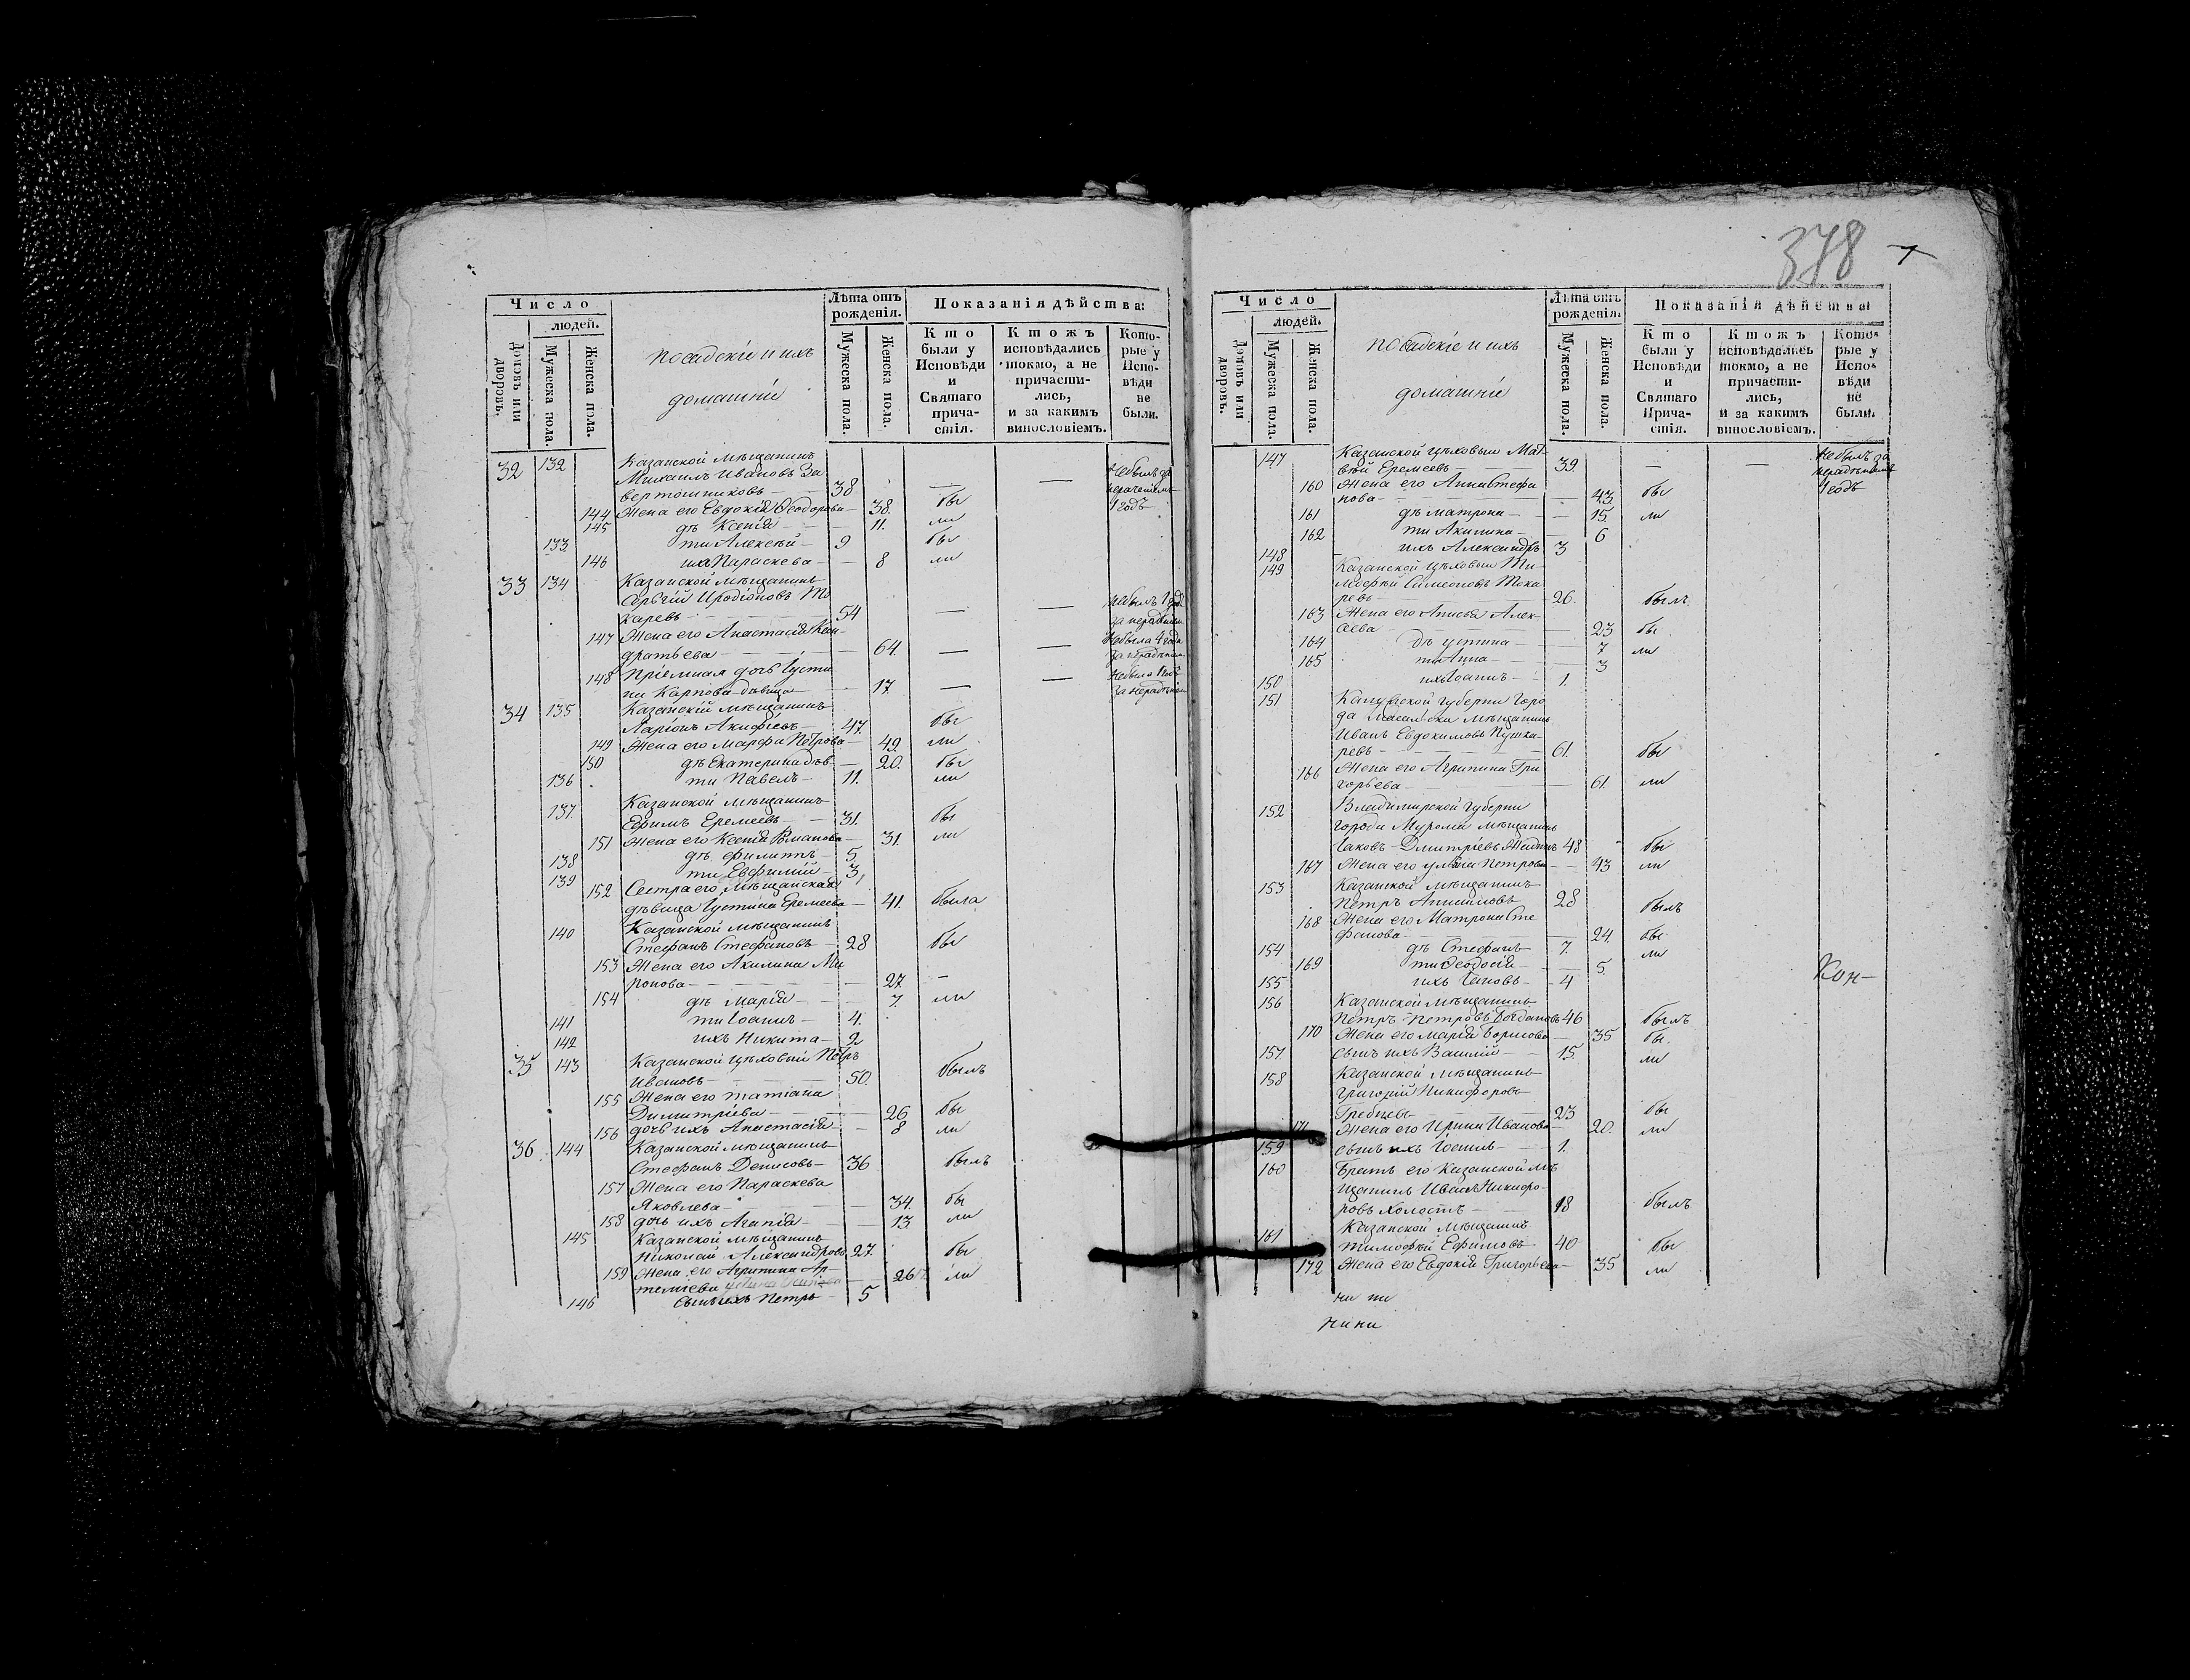 378
Число
людей.
Домовъ или дворовъ.
Мужеска пола.
Женска пола.
посадскіе и ихъ
домашніе
Лѣта отъ
рожденія.
Мужеска пола.
Женска пола.
Показанія дѣйства:
Кто
были у
Исповѣди
и
Святаго
прича-
стія.
Ктожъ
исповѣдались
токмо, а не
причасти-
лись,
и за какимъ
винословіемъ.
Кото-
рые у
Испо-
вѣди
не
были.
32 132 Казанской мѣщанинъ
Михаилъ Ивановъ За
вертошниковъ — 38 — —
1 годъ
144 Жена его Евдокія Ѳеодорова — 38. бы
145 дѣ Ксенія — 11. ли
133 ти Алексѣй — 9 бы
146 ихъ Параскева — 8 ли
33 134 Казанской мѣщанинъ
Сергій Иродіоновъ То
каревъ — 54 — —
147 Жена его Анастасія Кон-
дратьева — 64. — —
148 Пріемная дочь Іусти
на Карпова дѣвица — 17 — —
34 135 Казанскій мѣщанинъ
Ларіонъ Акифіевъ — 47. бы
149 Жена его Марфа Петрова — 49. ли
150 дѣ Екатерина дѣв. — 20. бы
136 ти Павелъ — 11. ли
137 Казанской мѣщанинъ
Ефимъ Еремеевъ — 31. бы
151 Жена его Ксенія Романова — 31. ли
138 дѣ Филиппъ — 5.
139 ти Евфимій — 3,
152 Сестра его, мѣщанская
дѣвица Іустина Еремеева — 41. была
140 Казанской мѣщанинъ
Стефанъ Стефановъ — 28 бы
153 Жена его Акилина Ми
ронова — 27. —
154 дѣ Марія — 7. ли
141 ти Іоаннъ — 4.
142 ихъ Никита — 2
35 143 Казанской цѣховый Петръ
Ивановъ — 50. былъ
155 Жена его Татіана
Димитріева — 26 бы
156 дочь ихъ Анастасія — 8 ли
36. 144 Казанской мѣщанинъ
Стефанъ Денисовъ — 36 былъ
157 Жена его Параскева
Яковлева — 34. бы
158 дочь ихъ Агапія — 13 ли
145 Казанской мѣщанинъ
Николай Александровъ 27. бы
159 Жена его Агрипина Ар-
теміева — 26 ли
146 Сынъ ихъ Петръ — 5
Число
людей.
Домовъ или дворовъ.
Мужеска пола.
Женска пола.
посадскіе и ихъ
домашніе
Лѣта отъ
рожденія.
Мужеска пола.
Женска пола.
Показанія дѣйства:
Кто
были у
Исповѣди
и
Святаго
Прича-
стія.
Ктожъ
исповѣдались
токмо, а не
причасти-
лись,
и за какимъ
винословіемъ.
Кото-
рые у
Испо-
вѣди
не
были.
147 Казанской цѣховый Мат-
вѣй Еремеевъ — 39. — — Небылъ за
160 Жена его Анна Стефа
нова — 43 бы
161 дѣ Матрона — 15. ли
162 ти Акилина — 6
148 ихъ Александръ 3
149 Казанской цѣховый Ти-
мофѣй Симеоновъ Тока
ревъ — 26. былъ
163 Жена его Анисья Алек-
сѣева — 23 бы
164 дѣ Устина — 7 ли
165 ти Анна — 3
150 ихъ Іоаннъ — 1.
151 Калужской губерни горо
да Масальска мѣщанинъ
Иванъ Евдокимовъ Пушка
ревъ — 61. бы
166 Жена его Агрипина Гри
горьева — 61. ли
152 Владимирской губерни
города Мурома мѣщанинъ
Іаковъ Дмитріевъ 48 бы
167 Жена его Улита Петрова — 43 ли
153 Казанской мѣщанинъ
Петръ 28 былъ
168 Жена его Матрона Сте
фанова — 24. бы
154 дѣ Стефанъ — 7. ли
169 ти Ѳеодосія — 5.
155 ихъ Іаковъ — 4
Кон-
156 Казанской мѣщанинъ
Петръ Петровъ Богдановъ 46 былъ
170 Жена его Марія Борисова — 35 бы
157 сынъ ихъ Василій — 15. ли
158 Казанской мѣщанинъ
Григорій Никифоровъ
Гребневъ — 23 бы
171 Жена его Ирина Иванова — 20. ли
159 сынъ ихъ — 1.
160 Братъ его Казанской мѣ
щанинъ Иванъ Никифо-
ровъ холостъ — 18 былъ
161 Казанской мѣщанинъ
Тимофѣй Ефимовъ — 40 бы
172 Жена его Евдокія Григорьева — 35 ли